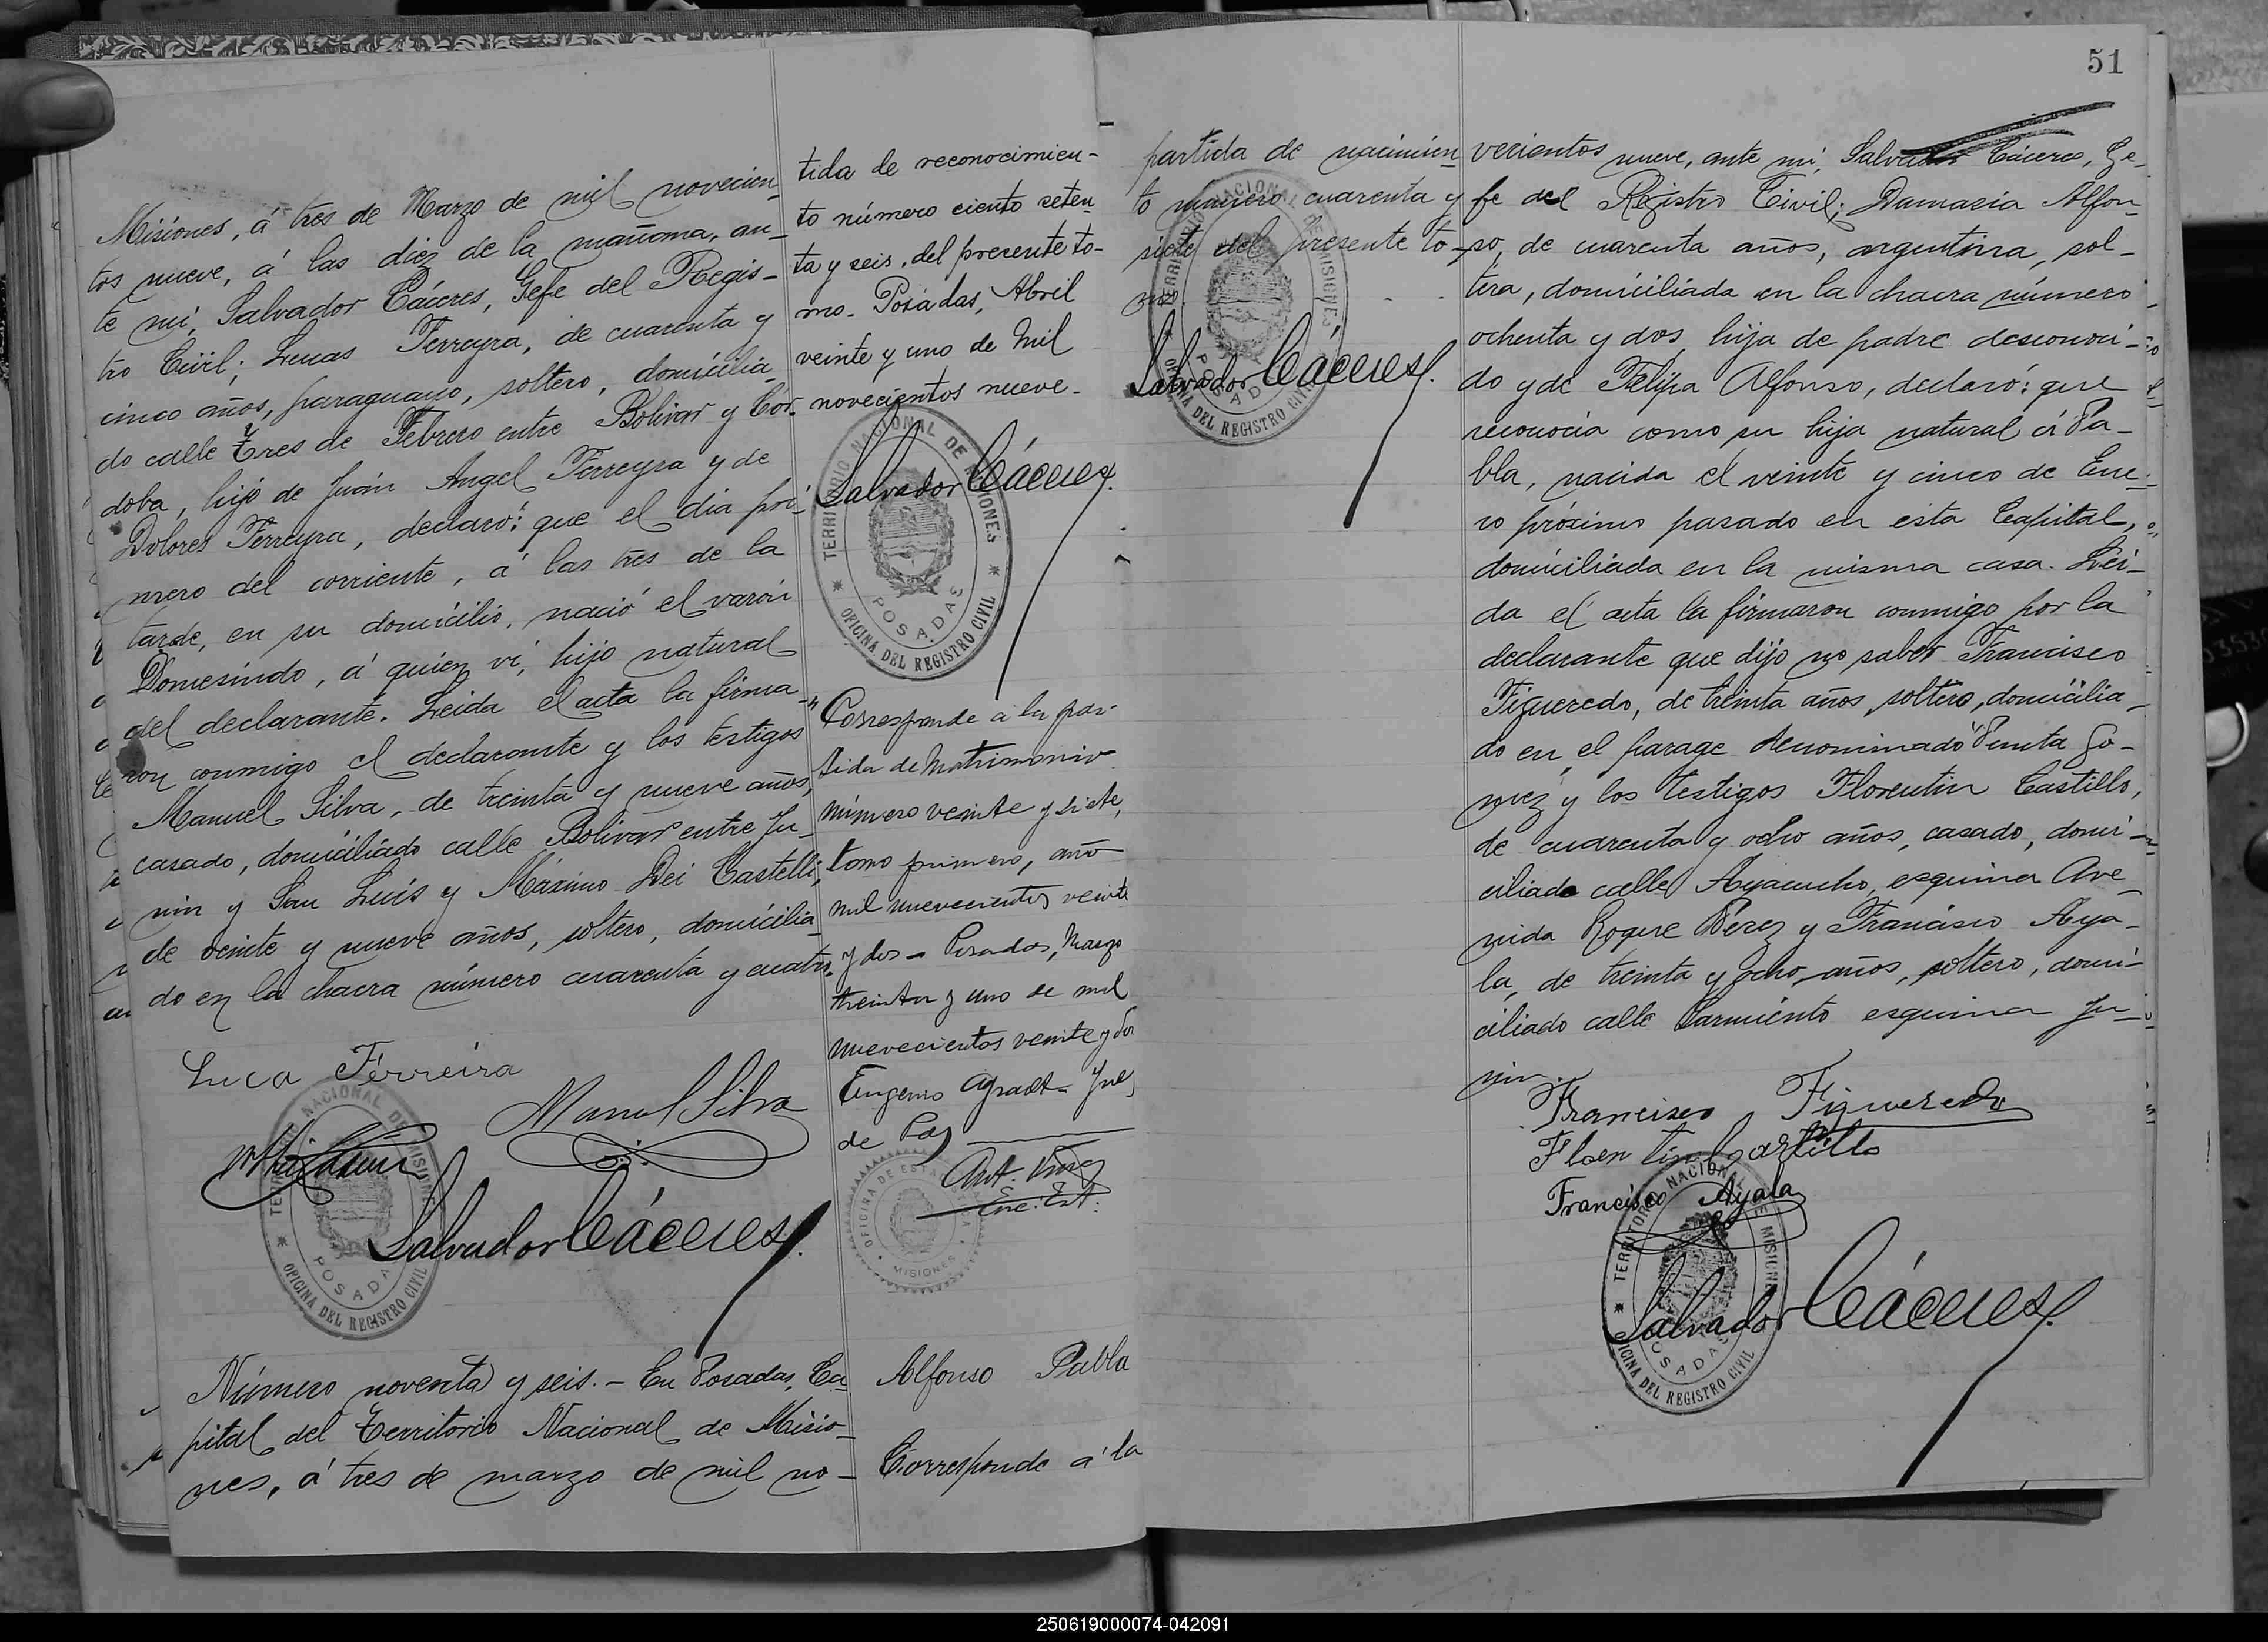 Misiones, á tres de Marzo de mil novecien-
tos nueve, á las diez de la mañana, an-
te mí, Salvador Cáceres, Gefe del Regis-
tro Civil; Lucas Ferreyra, de cuarenta y
cinco años, paraguayo, soltero, domicilia-
do calle Tres de Febrero entre Bolivar y Cór-
doba, hijo de Juán Angel Ferreyra y de
Dolores Ferreyra, declaró: que el dia pri-
mero del corriente, á las tres de la
tarde, en su domicilio, nació el varón
Domesindo, á quien ví, hijo natural
del declarante. Leida el acta la firma-
ron conmigo el declarante y los testigos
Manuel Silva, de treinta y nueve años,
casado, domiciliado calle Bolivar entre Ju-
nin y San Luis y Máximo Dei Castelli,
de veinte y nueve años, soltero, domicilia-
do en la chacra número cuarenta y cuatro.
Luca Ferreira
Manuel Silva
Salvador Cáceres
TERRITORIO NACIONAL DE MISIONES
POSADAS
OFICINA DEL REGISTRO CIVIL
Número noventa y seis. - En Posadas, Ca-
pital del Territorio Nacional de Misio-
nes, á tres de marzo de mil no-
tida de reconocimien-
to número ciento seten-
ta y seis, del presente to-
mo. Posadas, Abril
veinte y uno de mil
novecientos nueve.
Salvador Cáceres
TERRITORIO NACIONAL DE MISIONES
POSADAS
OFICINA DEL REGISTRO CIVIL
Corresponde a la par-
tida de Matrimonio
número veinte y siete,
tomo primero, año
mil nuevecientos veinte
y dos - Posadas, Marzo
treinta y uno de mil
nuevecientos veinte y dos
Eugenio Juez
de Paz
MISIONES
Alfonso Pabla
Corresponde á la
51
partida de nacimien-
to número cuarenta y
siete del presente to-
mo.
Salvador Cáceres
TERRITORIO NACIONAL DE MISIONES
POSADAS
OFICINA DEL REGISTRO CIVIL
vecientos nueve, ante mí, Salvador Cáceres, Ge-
fe del Registro Civil; Damasia Alfon-
so, de cuarenta años, argentina, sol-
tera, domiciliada en la chacra número
ochenta y dos, hija de padre desconoci-
do y de Felipa Alfonso, declaró: que
reconocia como su hija natural á Pa-
bla, nacida el veinte y cinco de Ene-
ro próximo pasado en esta Capital,
domiciliada en la misma casa. Lei-
da el acta la firmaron conmigo por la
declarante que dijo no saber Francisco
Figueredo, de treinta años, soltero, domicilia-
do en el parage denominado "Punta Go-
mez" y los testigos Florentin Castillo,
de cuarenta y ocho años, casado, domi-
ciliado calle Ayacucho, esquina Ave-
nida Roque Pérez y Francisco Aya-
la, de treinta y ocho años, soltero, domi-
ciliado calle Sarmiento esquina Ju-
nin.
Francisco Figueredo
Floentin Castillo
Francisco Ayala
Salvador Cáceres
TERRITORIO NACIONAL DE MISIONES
POSADAS
OFICINA DEL REGISTRO CIVIL
250619000074-042091